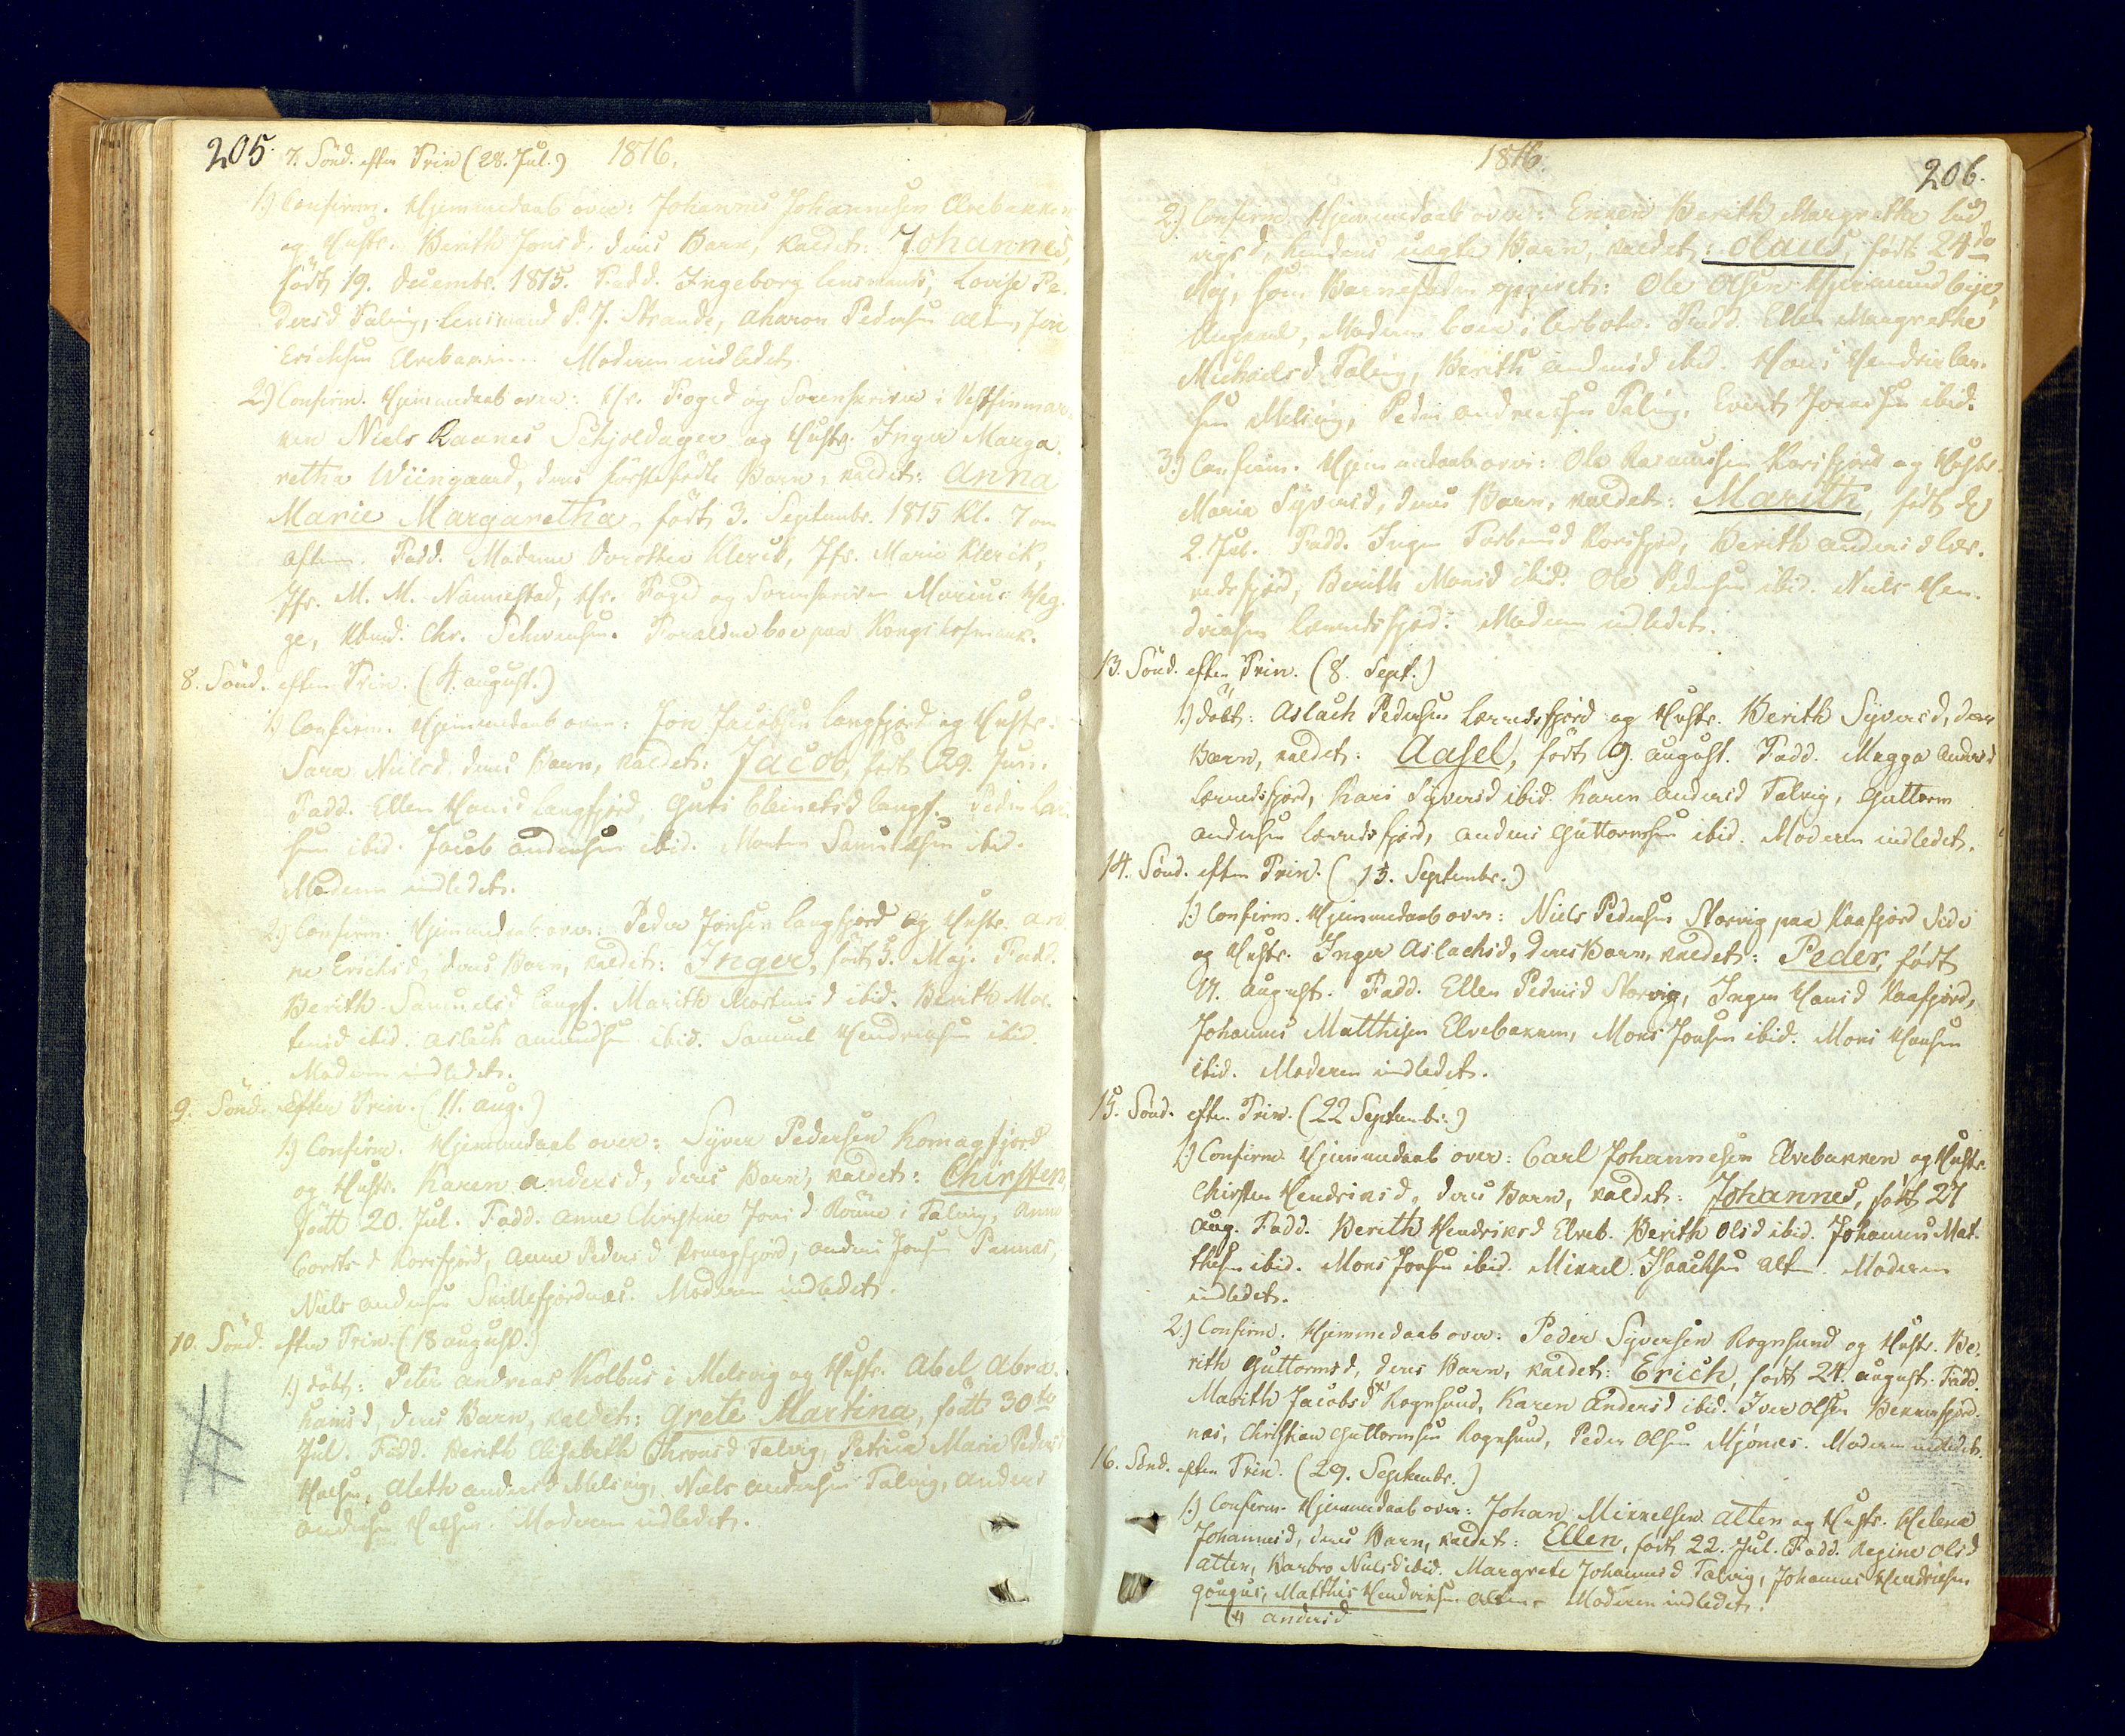 205. 7. Sönd. efter Trin (28. Jul.) 1816.
1.) Confirm. Hjemmedaab over: Johannes Johannesen Elvebakken
og Hustr. Berith Jonsd. deres Barn, kaldet: Johannes,
födt 19. Decembr. 1815. Fadd. Ingeborg Lensmands, Lovise Pe-
dersd Talvig, Lensmand P. J. Strand, Aharon Pedersen Alten, Jon
Ericksen Elvebakken. Moderen indledet.
2.) Confirm. Hjemmedaab over: Hr. Foged og Sorenskriver i Vestfinmar-
ken Niels Raanes Schjoldager og Hustr. Inger Marga-
retha Wiingaard, deres förstefödte Barn, kaldet: Anna
Marie Margaretha, födt 3. Septembr. 1815 Kl. 7 om
Aftenen. Fadd. Madame Dorothea Klerck, Jfr. Marie Klerck,
Jfr. M. M. Namestad, Hr. Foged og Sorenskriver Morius Heg-
ge, Chr. Forældre boe paa Kongshofmark.
8. Sönd. efter Trin. (4. August.)
1.) Confirm. Hjemmedaab over: Jon Jacobsen Langfjord og Hustr.
Sara Nielsd. deres Barn, kaldet: Jacob, födt 29. Jun.
Fadd. Ellen Hansd Langfjord, Guri Langf. Peder Lar-
sen ibid. Jacob Andersen ibid. Morten Samuelsen ibid.
Moderen indledet.
2.) Confirm. Hjemmedaab over: Peder Jonsen Langfjord og Hustr. An-
ne Ericksd, deres Barn, kaldet: Inger, födt 5. Maj. Fadd.
Berith Samuelsd Langf. Marith Mortensd ibid. Berith Mor-
tensd ibid. Aslach Amundsen ibid. Samuel Hendricksen ibid.
Moderen indledet.
9. Sönd. efter Trin. (11. Aug.)
1.) Confirm. Hjemmedaab over: Syver Pedersen Komagfjord
og Hustr. Karen Andersd, deres Barn, kaldet: Chirsten,
födt 20. Jul. Fadd. Anne Christine Jonsd i Talvig, Anne
Korsfjord, Anne Pedersd Komagfjord, Anders Jonsen
Niels Andersen Skillefjordnæs. Moderen indledet.
10. Sönd. efter Trin. (18 August.)
1.) döbt: Peter Andreas Kolbus i Melsvig og Hustr. Abel Abra-
hamsd, deres Barn, kaldet: Grete Martina, födt 30te
Jul. Fadd. Berith Elisabeth Thronsd Talvig, Petrica Marie Pedersd
Aleth Andersd Melsvig, Niels Andersen Talvig, Anders
Andersen Moderen indledet.
1816. 206.
2.) Confirm. Hjemmedaab over: Enken Berith Margrethe Lud-
vigsd, hendes uægte Barn, kaldet: Olaus, födt 24de
Maj, som Barnefader opgivet: Ole Olsen
Ungkarl, Moderen boer i Lerbotn. Fadd. Ellen Margrethe
Michaelsd Talvig, Berith Andersd ibid. Hans Hendrick Lar-
sen Melsvig, Peder Andreasen Talvig. Evert Iversen ibid.
3.) Confirm. Hjemmedaab over: Ole Rasmussen Korsfjord og Hustr.
Marie Syversd, deres Barn, kaldet: Marith, födt d.
2. Jul. Fadd. Inger Korsfjord, Berith Andersd Lær-
redsfjord, Berith Monsd ibid. Ole Pedersen ibid. Niels Hen-
dricksen Lærredsfjord. Moderen indledet.
13. Sönd. efter Trin. (8. Sept.)
1.) döbt: Aslach Pedersen Lærredsfjord og Hustr. Berith Syversd, deres
Barn, kaldet: Aasel, födt 9. August. Fadd. Magga Andersd
Lærredsfjord, Kari Syversd ibid. Karen Andersd Talvig, Guttorm
Andersen Lærredsfjord, Anders Guttormsen ibid. Moderen indledet.
14. Sönd. efter Trin. (15. Septembr.)
1.) Confirm. Hjemmedaab over: Niels Pedersen Storvig paa Kaafjord Side
og Hustr. Inger Aslachsd, deres Barn, kaldet: Peder, födt
17. August. Fadd. Ellen Pedersd Storvig, Inger Hansd Kaafjord,
Johannes Matthisen Elvebakken, Mons Jonsen ibid. Mons Hansen
ibid. Moderen indledet.
15. Sönd. efter Trin. (22 Septembr.)
1.) Confirm. Hjemmedaab over: Carl Johannesen Elvebakken og Hustr.
Chirsten Hendriksd, deres Barn, kaldet: Johannes, födt 27
Aug. Fadd. Berith Hendriksd Elveb. Berith Olsd ibid. Johannes Mat-
thisen ibid. Mons Jonsen ibid. Mikkel Isacksen Alten. Moderen
indledet.
2.) Confirm. Hjemmedaab over: Peder Syversen Rognsund og Hustr. Be-
rith Guttormsd, deres Barn, kaldet: Erich, födt 24. August. Fadd.
Marith Jacobsd x) Rognsund, Karen Andersd ibid. Iver Olsen Bekkerfjord-
næs, Christian Guttormsen Rognsund, Peder Olsen Mjones. Moderen indledet.
16. Sönd. efter Trin. (29. Septembr.)
1.) Confirm. Hjemmedaab over: Johan Mikkelsen Alten og Hustr. Helena
Johannesd, deres Barn, kaldet: Ellen, födt 22. Jul. Fadd. Regine Olsd
Alten, Barbro Nielsd ibid. Margrete Johannesd Talvig, Johannes Hendricksen
Gongus, Matthis Hendriksen Alten. Moderen indledet.
x) Andersd